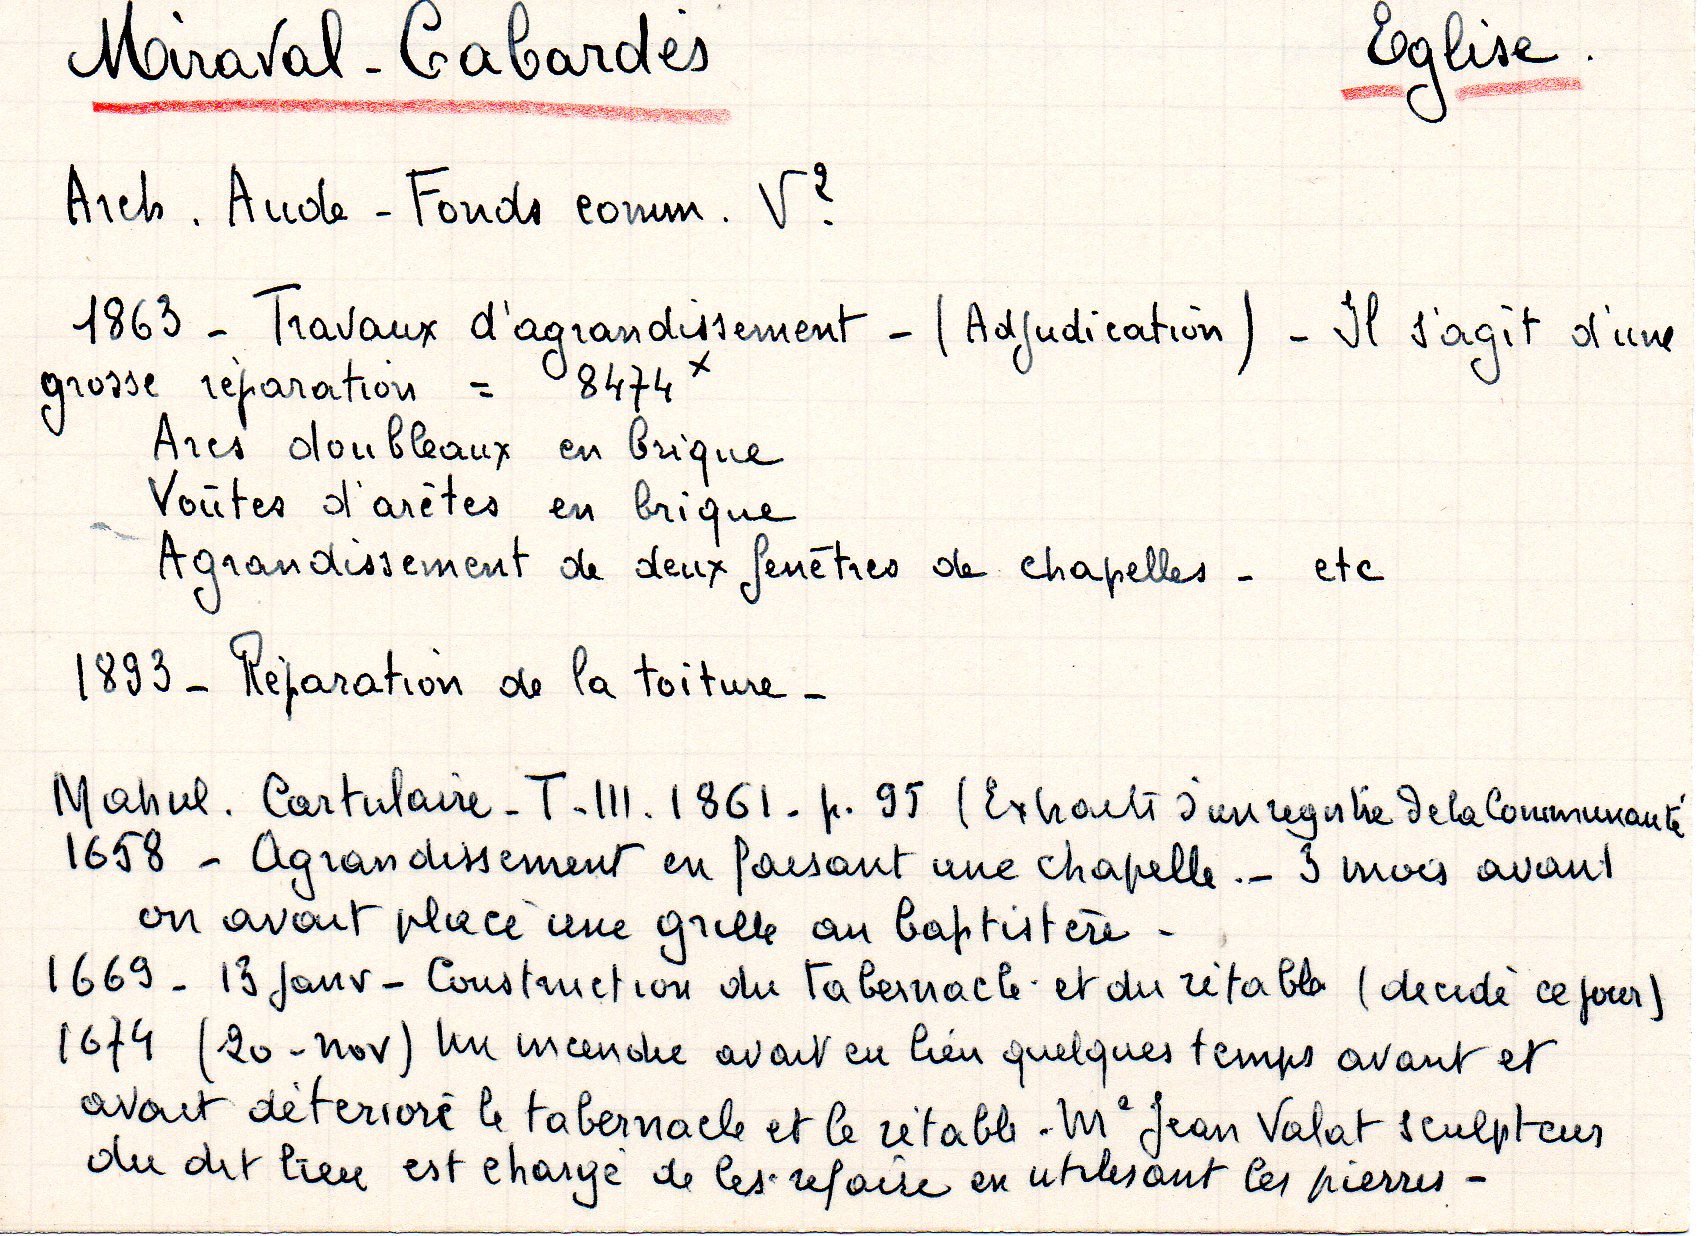 Miraval-Cabardès Eglise.
Arch. Aude - Fonds comm. V².
1863 - Travaux d'agrandissement - (Adjudication) - Il s'agit d'une
grosse réparation = 8474
Arcs doubleaux en brique
Voûtes d'arêtes en brique
Agrandissement de deux fenêtres de chapelles - etc
1893 - Réparation de la toiture -
Mahul. Cartulaire - T. III. 1861. p. 95 (Extraits d'un registre de la Communauté
1658 - Agrandissement en faisant une chapelle. - 3 mois avant
on avait placé une grille au baptistère -
1669 - 13 janv - Construction du tabernacle et du rétable (décidé ce jour)
1674 (20 - nov) Un incendie avait eu lieu quelques temps avant et
avait détérioré le tabernacle et le rétable. Mᵉ Jean Valat sculpteur
du dit lieu est chargé de les refaire en utilisant les pierres -